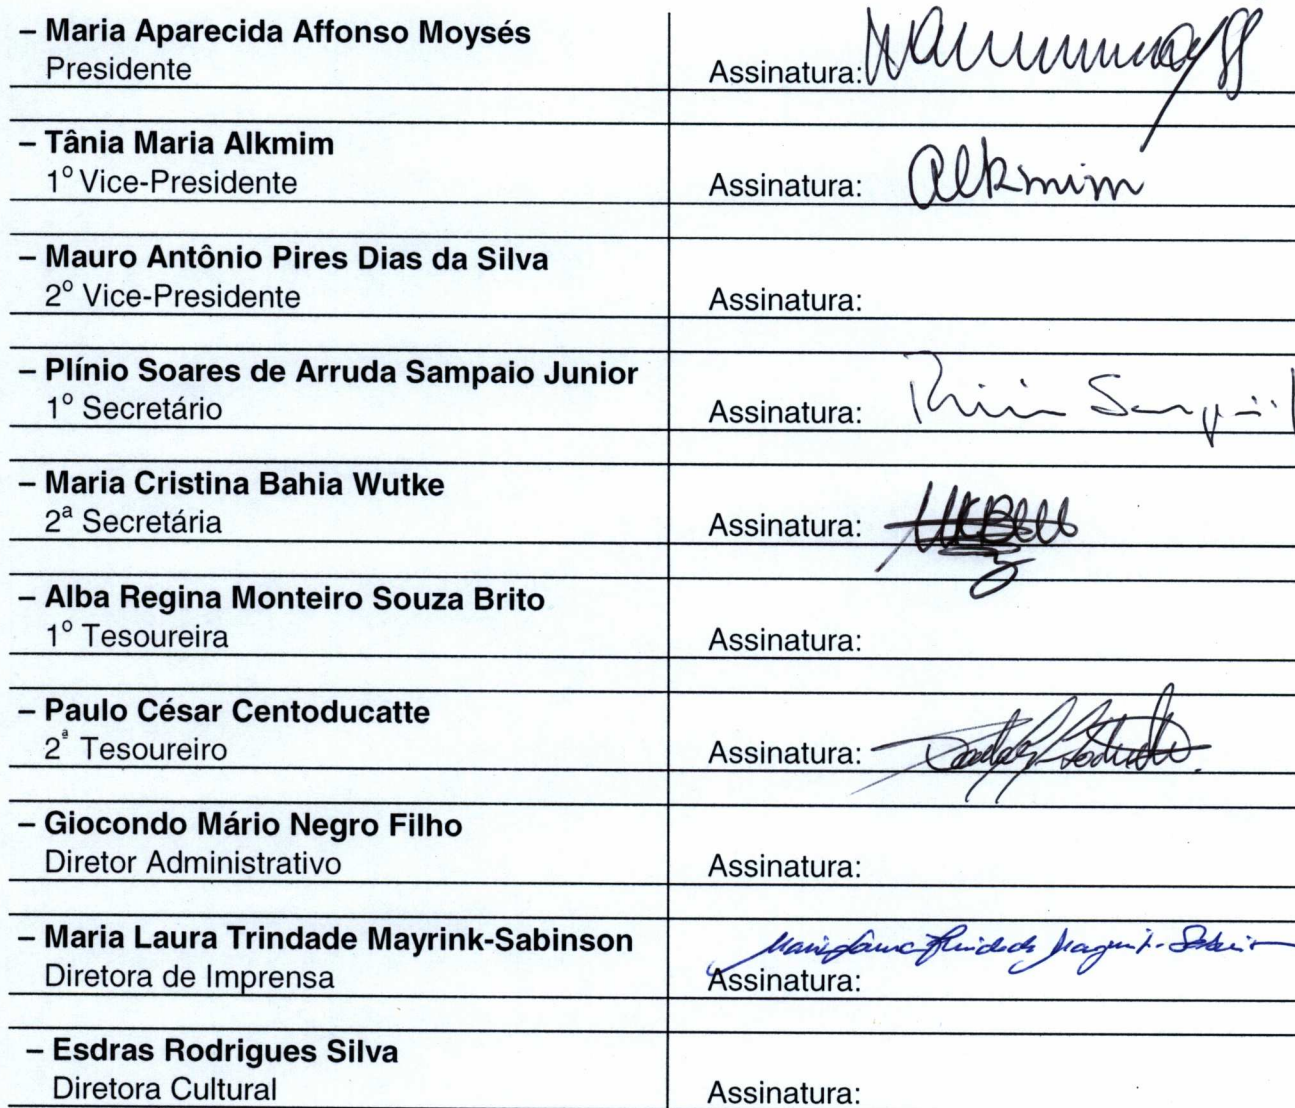 – Maria Aparecida Affonso Moysés
Presidente
Assinatura:
– Tânia Maria Alkmim
1º Vice-Presidente
Assinatura: Alkmim
– Mauro Antônio Pires Dias da Silva
2º Vice-Presidente
Assinatura:
– Plínio Soares de Arruda Sampaio Junior
1º Secretário
Assinatura:
– Maria Cristina Bahia Wutke
2ª Secretária
Assinatura:
– Alba Regina Monteiro Souza Brito
1º Tesoureira
Assinatura:
– Paulo César Centoducatte
2ª Tesoureiro
Assinatura:
– Giocondo Mário Negro Filho
Diretor Administrativo
Assinatura:
– Maria Laura Trindade Mayrink-Sabinson
Diretora de Imprensa
Maria Laura Trindade Mayrink-Sabinson
Assinatura:
– Esdras Rodrigues Silva
Diretora Cultural
Assinatura: